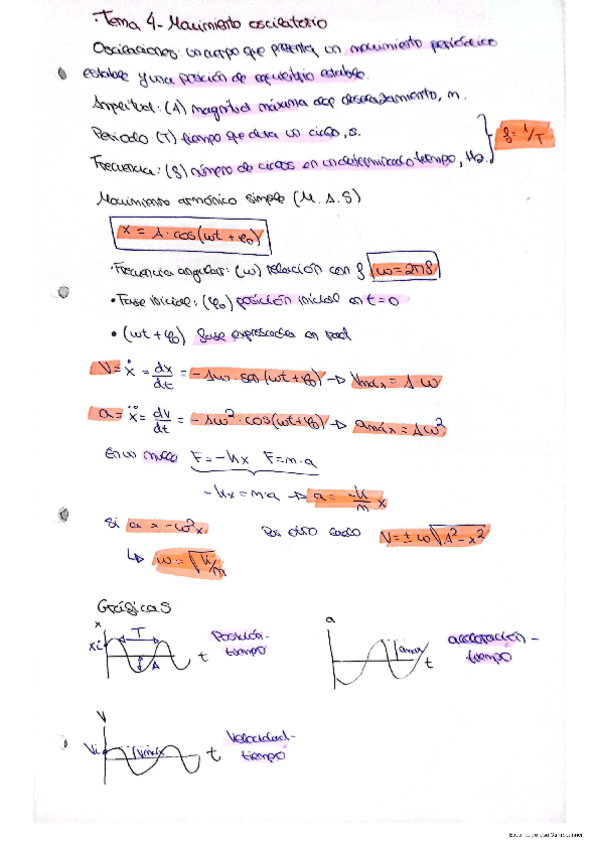 Tema 4 - Movimiento oscilatorio
Oscilaciones: un cuerpo que presenta un movimiento periódico
estable y una posición de equilibrio estable.
Amplitud: (A) magnitud máxima del desplazamiento, m.
Periodo: (T) tiempo que dura un ciclo, s.
f = 1/T
Frecuencia: (f) número de ciclos en un determinado tiempo, Hz.
Movimiento armónico simple (M.A.S)
x = A · cos(ωt + φ₀)
· Frecuencia angular: (ω) relación con f ω = 2πf
• Fase inicial: (φ₀) posición inicial en t = 0
• (ωt + φ₀) fase expresadas en rad
V = ẋ = dx/dt = - Aω · sen(ωt + φ₀) → Vmáx = A · ω
a = ẍ = dv/dt = - Aω² · cos(ωt + φ₀) → amáx = Aω²
En un muelle F = -kx F = m·a
-kx = m·a → a = -k/m x
Si a = -ω²x Por otro lado V = ± ω√A² - x²
↳ ω = √k/m
Gráficas
x
xi
T
A
t
Posición-
tiempo
a
amáx
t
aceleración -
tiempo
V
Vi
Vmáx
t
Velocidad-
tiempo